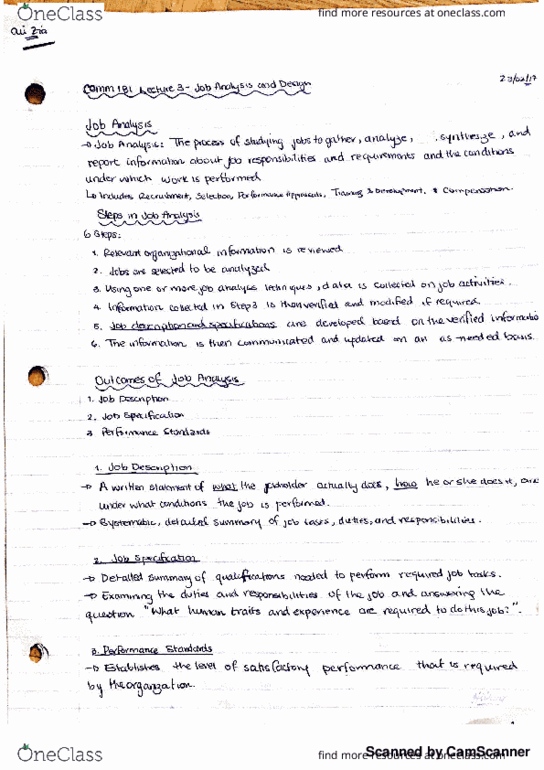 OneClass
find more resources at oneclass.com
Zia
23/02/17
Comm 181 Lecture 3 - Job Analysis and Design
Job Analysis
→ Job Analysis: The process of studying jobs to gather, analyze, synthesize, and
report information about job responsibilities and requirements and the conditions
under which work is performed
↳ Includes Recruitment, Selection, Performance Appraisals, Training & Development, & Compensation.
Steps in Job Analysis
6 Steps:
1. Relevant organizational information is reviewed
2. Jobs are selected to be analyzed
3. Using one or more job analysis techniques, data is collected on job activities.
4. Information collected in Step 3 is then verified and modified if required.
5. Job description and specifications are developed based on the verified informatio
6. The information is then communicated and updated on an as-needed basis.
Outcomes of Job Analysis
1. Job Description
2. Job Specification
3 Performance Standards
1. Job Description
→ A written statement of what the jobholder actually does, how he or she does it, and
under what conditions the job is performed.
→ Systematic, detailed summary of job tasks, duties, and responsibilities.
2. Job Specification
→ Detailed summary of qualifications needed to perform required job tasks.
→ Examining the duties and responsibilities of the job and answering the
question "What human traits and experience are required to do this job?".
3. Performance Standards
→ Establishes the level of satisfactory performance that is required
by the organization.
OneClass
find more resources at oneclass.com
Scanned by CamScanner